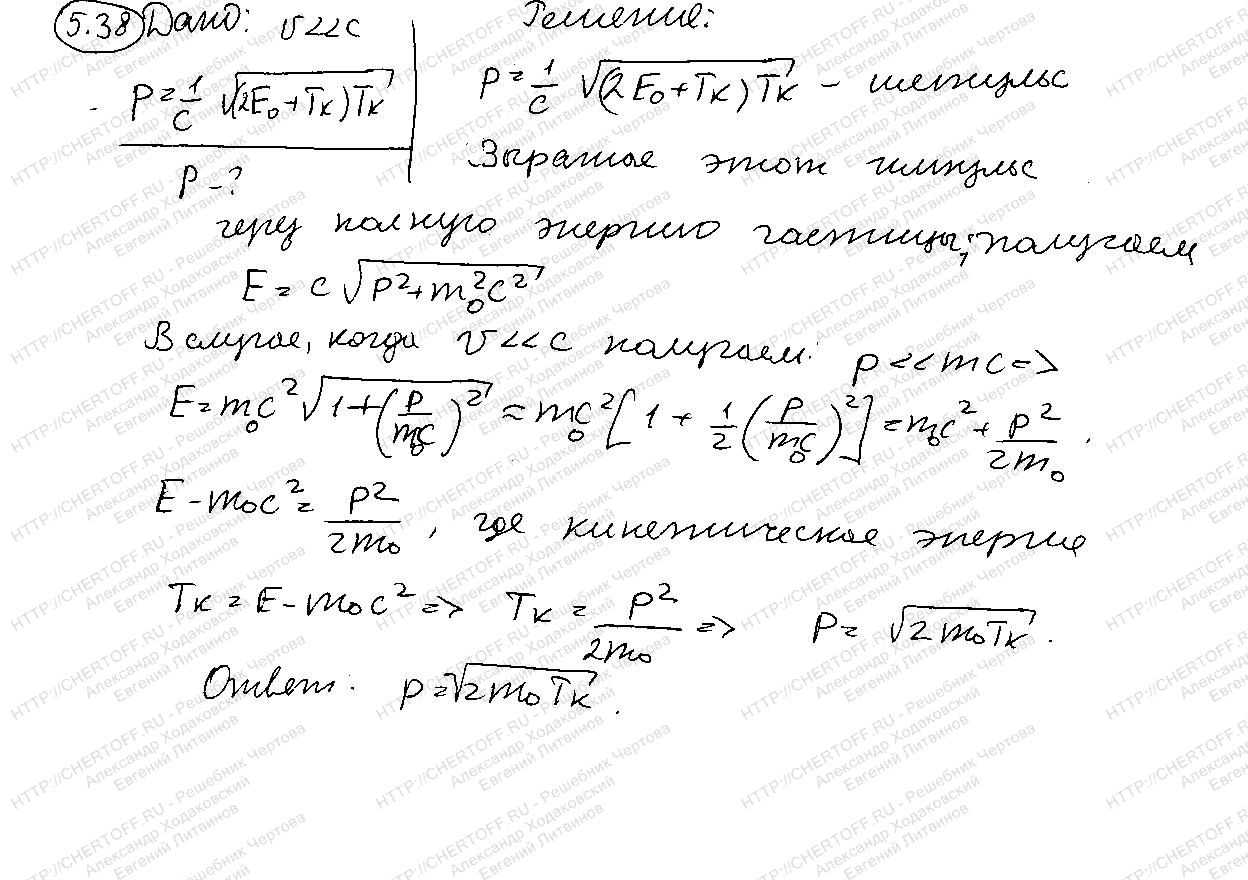 5.38 Дано: v<<c Решение:
P = 1/c √(2E₀+Tк)Tк P = 1/c √(2E₀+Tк)Tк – импульс
P – ? Выражая этот импульс
через полную энергию частицы, получаем
E = c √P²+m₀²c²
В случае, когда v<<c получаем: p<<mc =>
E = m₀c² √1+(P/m₀c)² ≈ m₀c² [1 + 1/2 (P/m₀c)²] = m₀c² + P²/2m₀.
E – m₀c² = P²/2m₀, где кинетическая энергия
Tк = E – m₀c² => Tк = P²/2m₀ => P = √2m₀Tк.
Ответ: p = √2m₀Tк.
HTTP://CHERTOFF.RU - Решебник Чертова
Александр Ходаковский
Евгений Литвинов